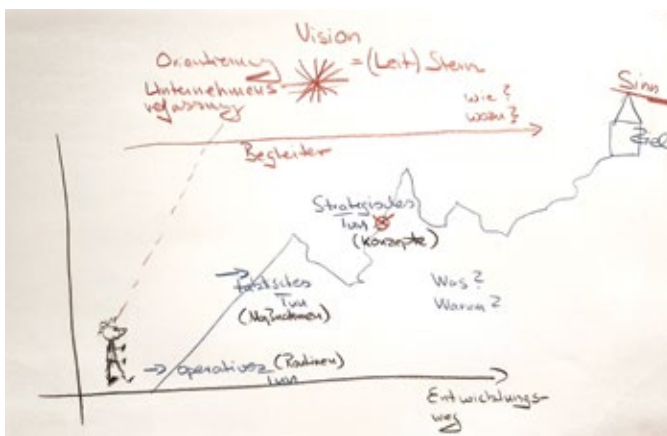 Vision
Orientierung
= (Leit) Stern
Unternehmens
verfassung
Sinn
wie?
wozu?
Ziel
Begleiter
Strategisches
Tun
(Konzepte)
taktisches
Tun
(Maßnahmen)
Was?
Warum?
→ operatives (Routinen)
Tun
Entwicklungs-
weg